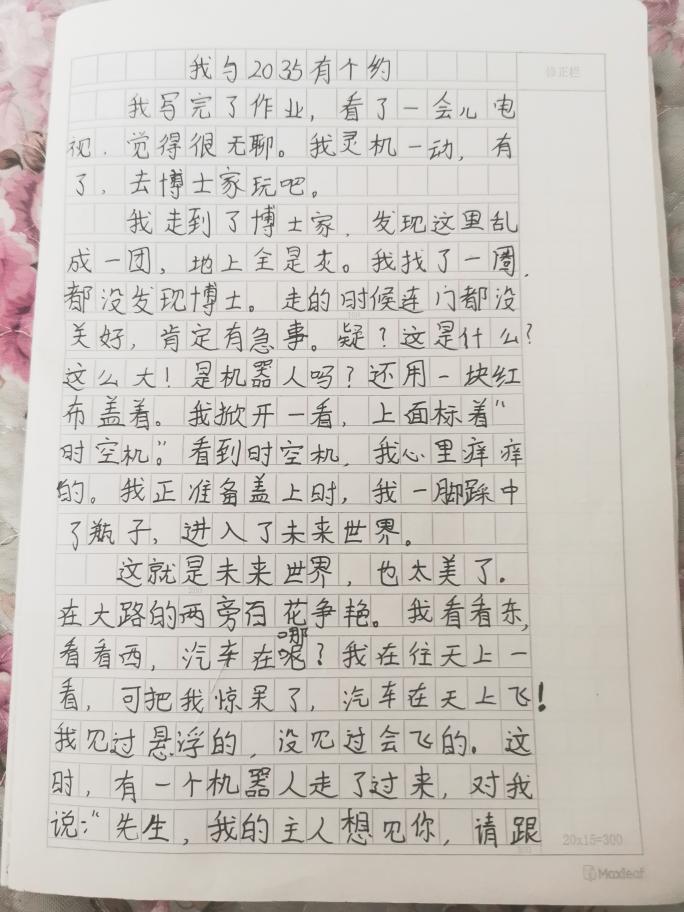 我与2035有个约
修正栏
我写完了作业，看了一会儿电
视．觉得很无聊。我灵机一动，有
了，去博士家玩吧。
我走到了博士家，发现这里乱
成一团，地上全是灰。我找了一圈，
都没发现博士。走的时候连门都没
关好，肯定有急事。疑？这是什么？
这么大！是机器人吗？还用一块红
布盖着。我掀开一看，上面标着“
时空机”。看到时空机，我心里痒痒
的。我正准备盖上时，我一脚踩中
了瓶子，进入了未来世界。
这就是未来世界，也太美了．
在大路的两旁百花争艳。我看看东，
看看西，汽车在哪呢？我在往天上一
看，可把我惊呆了，汽车在天上飞！
我见过悬浮的，没见过会飞的．这
时，有一个机器人走了过来，对我
说：“先生，我的主人想见你，请跟
20x15=300
Maxleaf